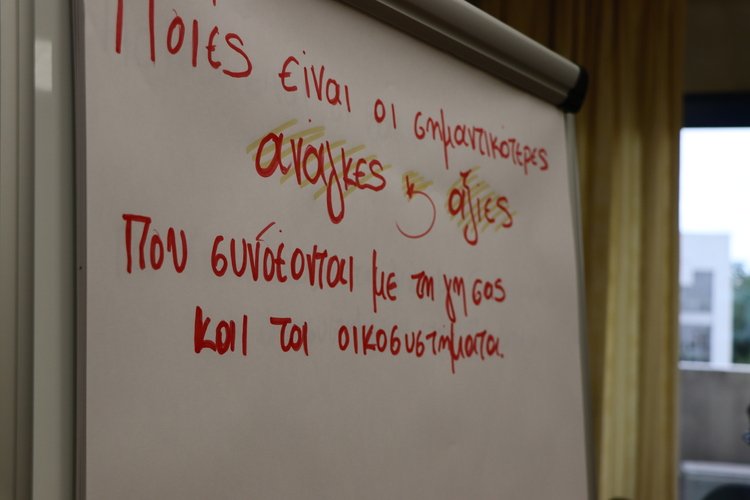 Ποιές είναι οι σημαντικότερες
ανάγκες ϗ αξίες
Που συνδέονται με τη γη σας
και τα οικοσυστήματα.